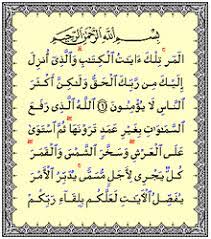 بِسْمِ اللَّهِ الرَّحْمَٰنِ الرَّحِيمِ
الٓمٓر تِلْكَ ءَايَٰتُ ٱلْكِتَٰبِ وَٱلَّذِىٓ أُنزِلَ
إِلَيْكَ مِن رَّبِّكَ ٱلْحَقُّ وَلَٰكِنَّ أَكْثَرَ
ٱلنَّاسِ لَا يُؤْمِنُونَ ۝ ٱللَّهُ ٱلَّذِى رَفَعَ
ٱلسَّمَٰوَٰتِ بِغَيْرِ عَمَدٍ تَرَوْنَهَا ثُمَّ ٱسْتَوَىٰ
عَلَى ٱلْعَرْشِ وَسَخَّرَ ٱلشَّمْسَ وَٱلْقَمَرَ
كُلٌّ يَجْرِى لِأَجَلٍ مُّسَمًّى يُدَبِّرُ ٱلْأَمْرَ
يُفَصِّلُ ٱلْءَايَٰتِ لَعَلَّكُم بِلِقَآءِ رَبِّكُمْ